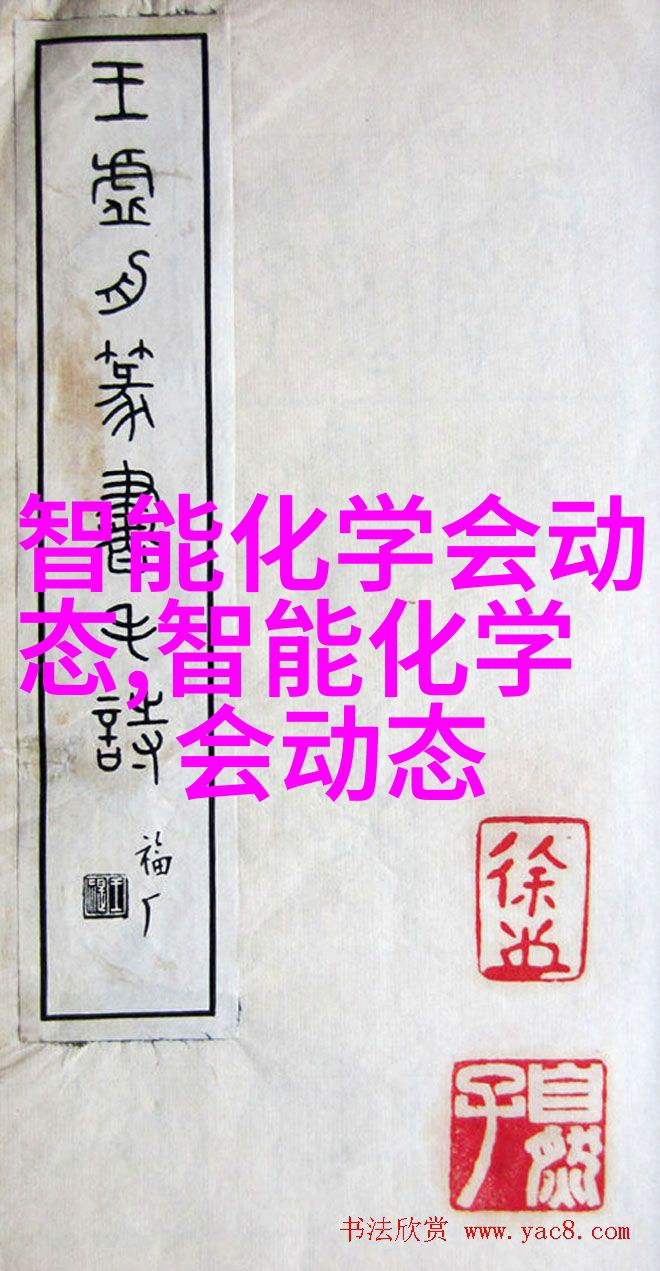 王虛舟篆書毛詩
福厂
智能化学会动
态,智能化学
会动态
自然子
书法欣赏 www.yac8.com